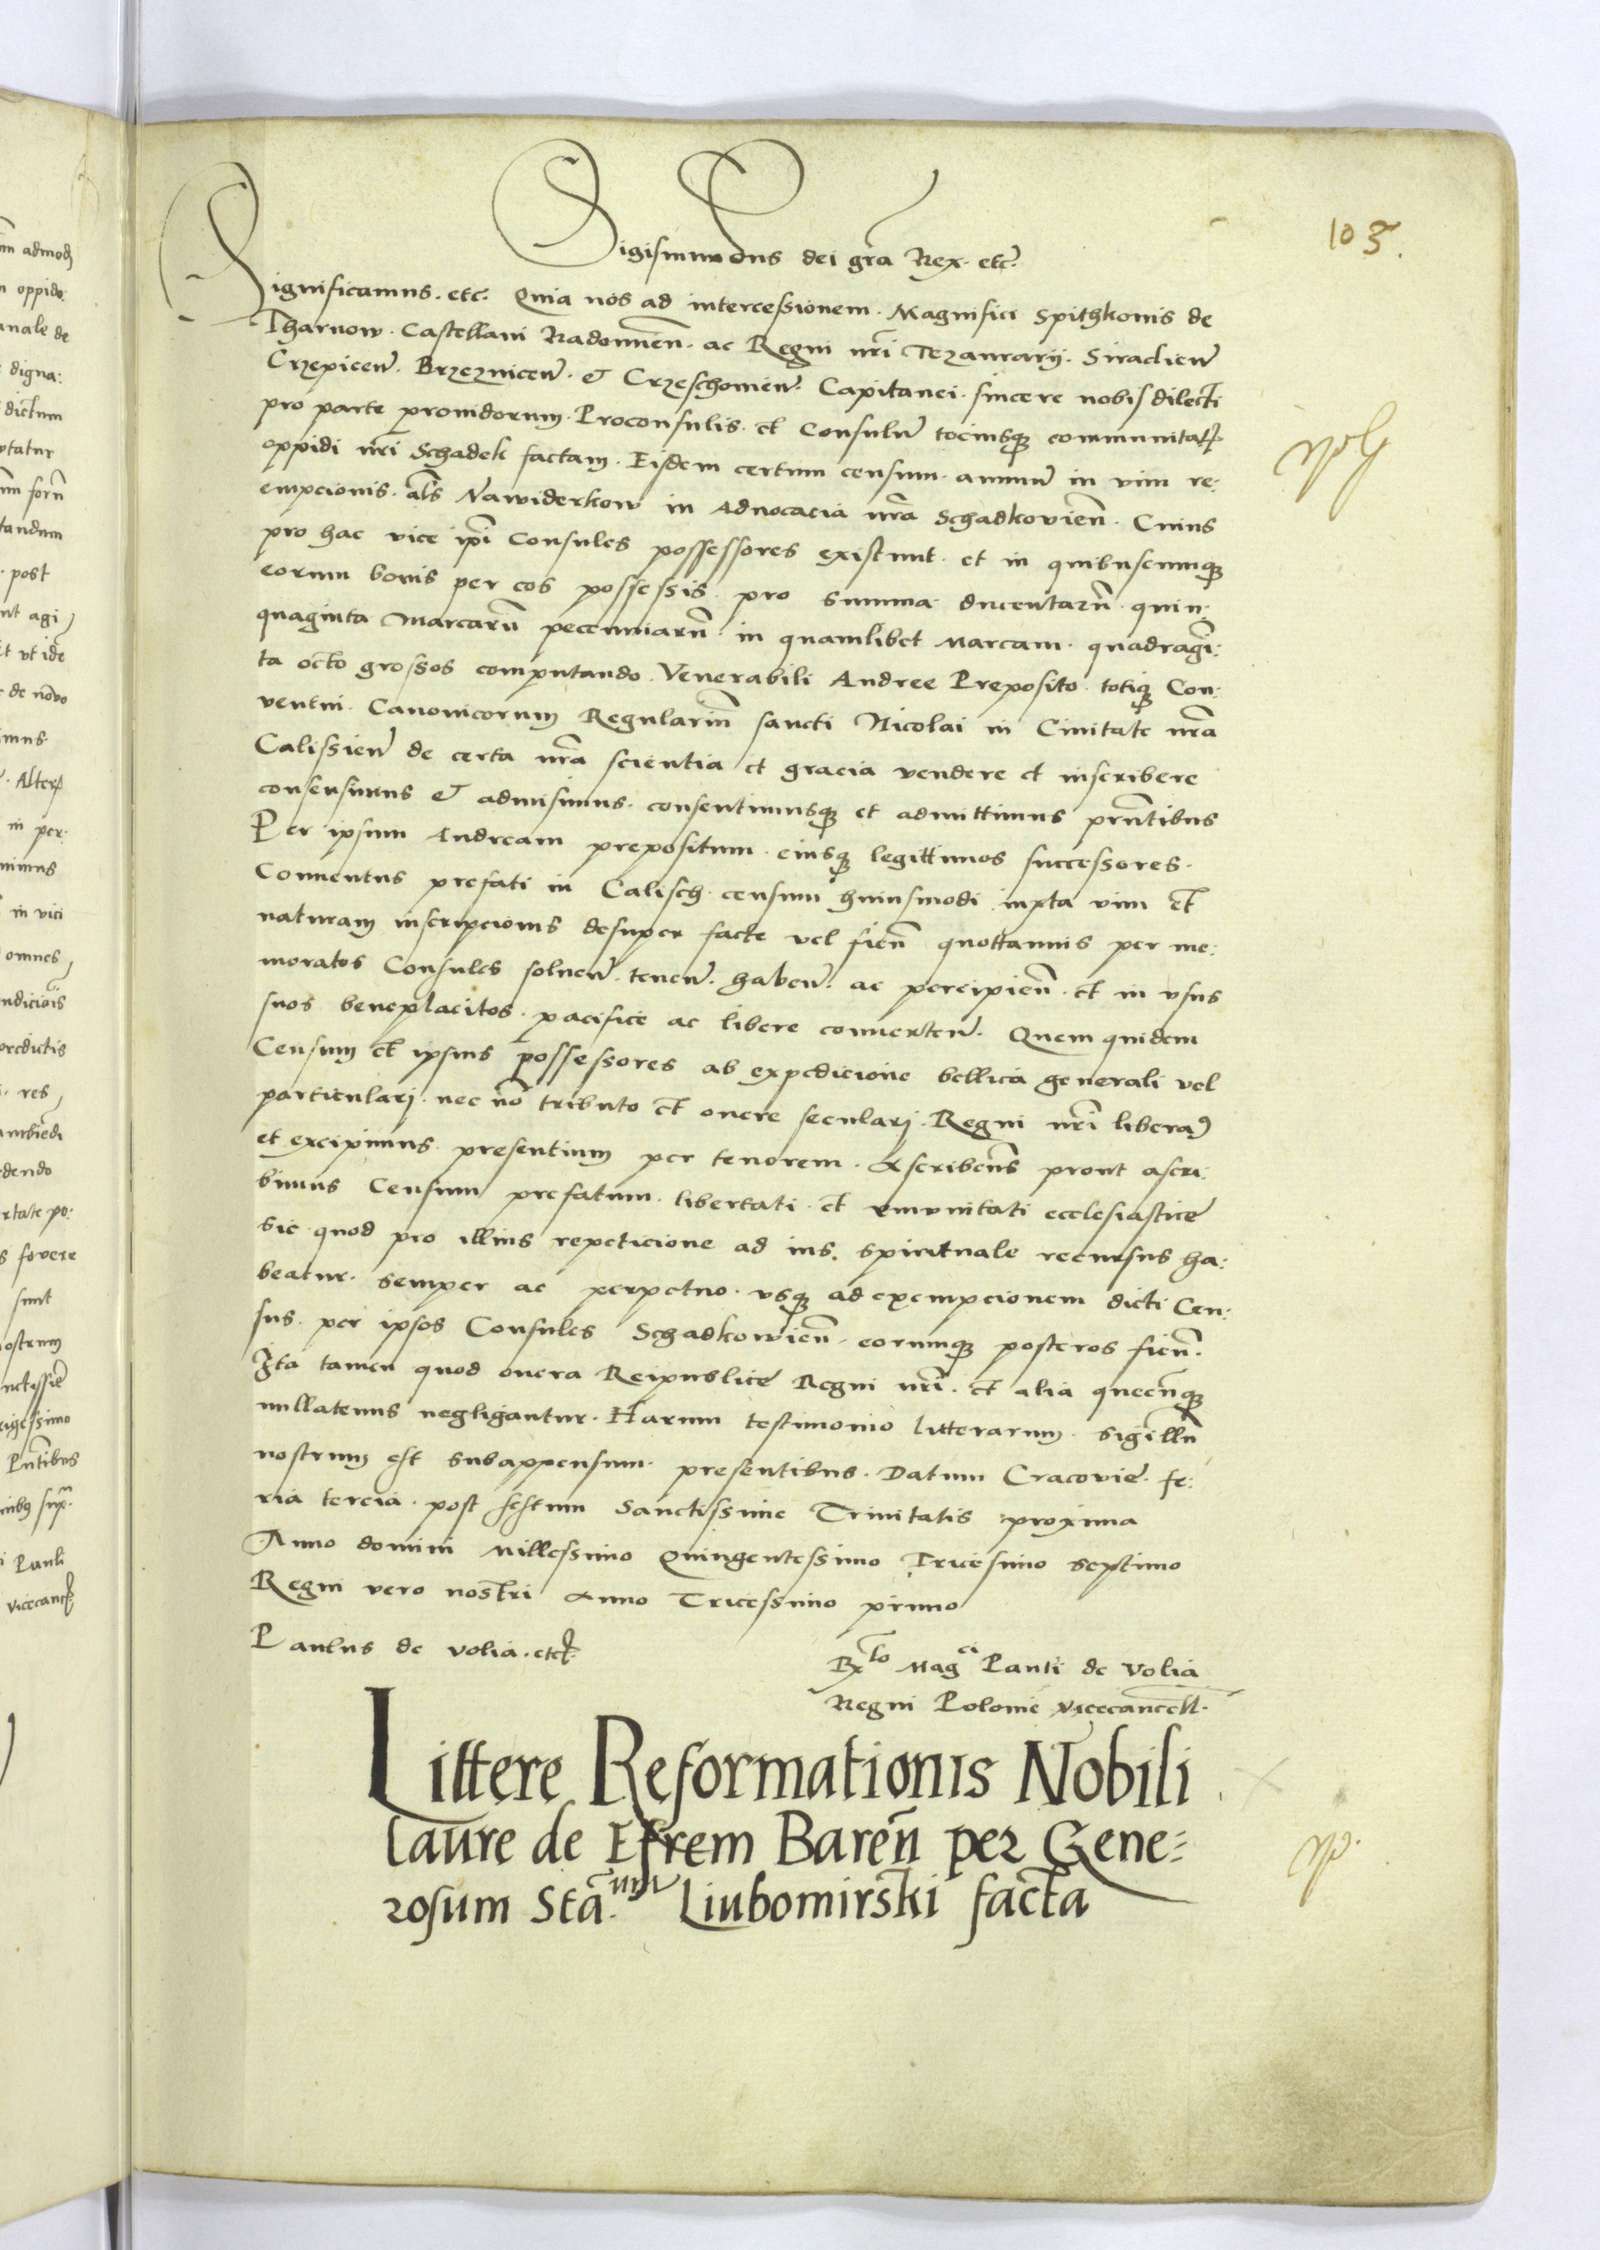 103.
Sigismundus dei gra Rex. etc.
Significamus. etc. Quia nos ad intercessionem. Magnifici Spithkonis de
Tharnow. Castellani Radomien. ac Regni nri Tezaurarij. Siradien
Crzepicen. Brzeznicen. & Crzeschovien. Capitanei. sincere nobis dilecti
pro parte providorum. Proconsulis. et Consulu tociusq communitat
oppidi nri Schadek factam. Eisdem certum censum. annuu in vim re:
empcionis. als Nawiderkow in Advocacia nra Schadkovien. Cuius
pro hac vice ipi Consules possessores existunt. et in quibuscumq
eorum bonis per eos possessis. pro summa ducentaru. quin:
quaginta Marcaru pecuniaru. in quamlibet Marcam. quadragi:
ta octo grossos computando. Venerabili Andree Preposito. totiq Con:
ventui. Canonicorum Regulariu sancti Nicolai in Civitate nra
Calissien de certa nra scientia et gracia vendere et inscribere
consensimus & admisimus. consentimusq et admittimus prntibus
Per ipsum Andream prepositum. eiusq legittimos successores.
Conventus prefati in Calisch. censum huiusmodi iuxta vim et
naturam inscripcionis desuper facte vel fien quottannis per me:
moratos Consules solven. tenen. haben. ac percipien. et in usus
suos beneplacitos. pacifice ac libere converten. Quem quidem
Censum et ipsius possessores ab expedicione bellica generali vel
particulari. nec no tributo et onere seculari. Regni nri libera
et excipimus presentium per tenorem. Ascribens prout ascri:
bimus Censum prefatum. libertati. et emunitati ecclesiastice
sic quod pro illius repeticione ad ius. spirituale recursus ha:
beatur. semper ac perpetuo. usq ad exempcionem dicti Cen:
sus. per ipsos Consules Schadkowien. eorumq posteros fien.
Ita tamen quod onera Reipublice Regni nri. et alia quecunq
nullatenus negligantur. Harum testimonio litterarum. sigillu
nostrum est subappensum. presentibus. Datum Cracovie. fe:
ria tercia. post festum Sanctissime Trinitatis proxima
Anno domini Millessimo Quingentessimo Tricesimo septimo
Regni vero nostri Anno Tricessimo primo
Paulus de volia. etc
Rx to Mag ci Pauli de Volia
Regni Polonie vicecancell.
Littere Reformationis Nobili
Laure de Efrem Baren per Gene=
rosum Sta. um Liubomirski facta